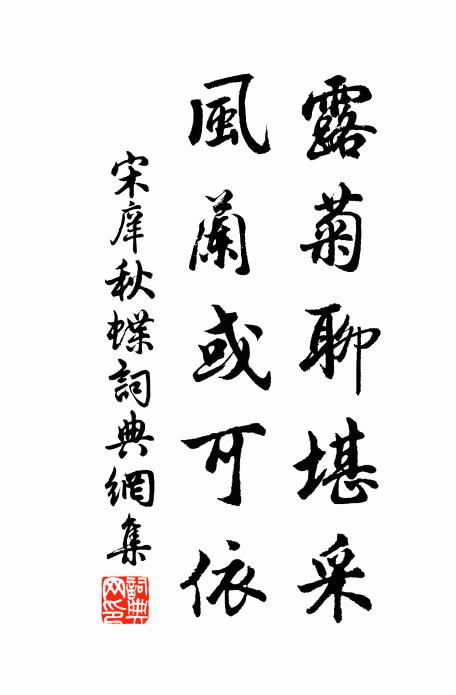 露菊聊堪采
風蘭或可依
宋庠秋蝶詞典網集
詞典網印